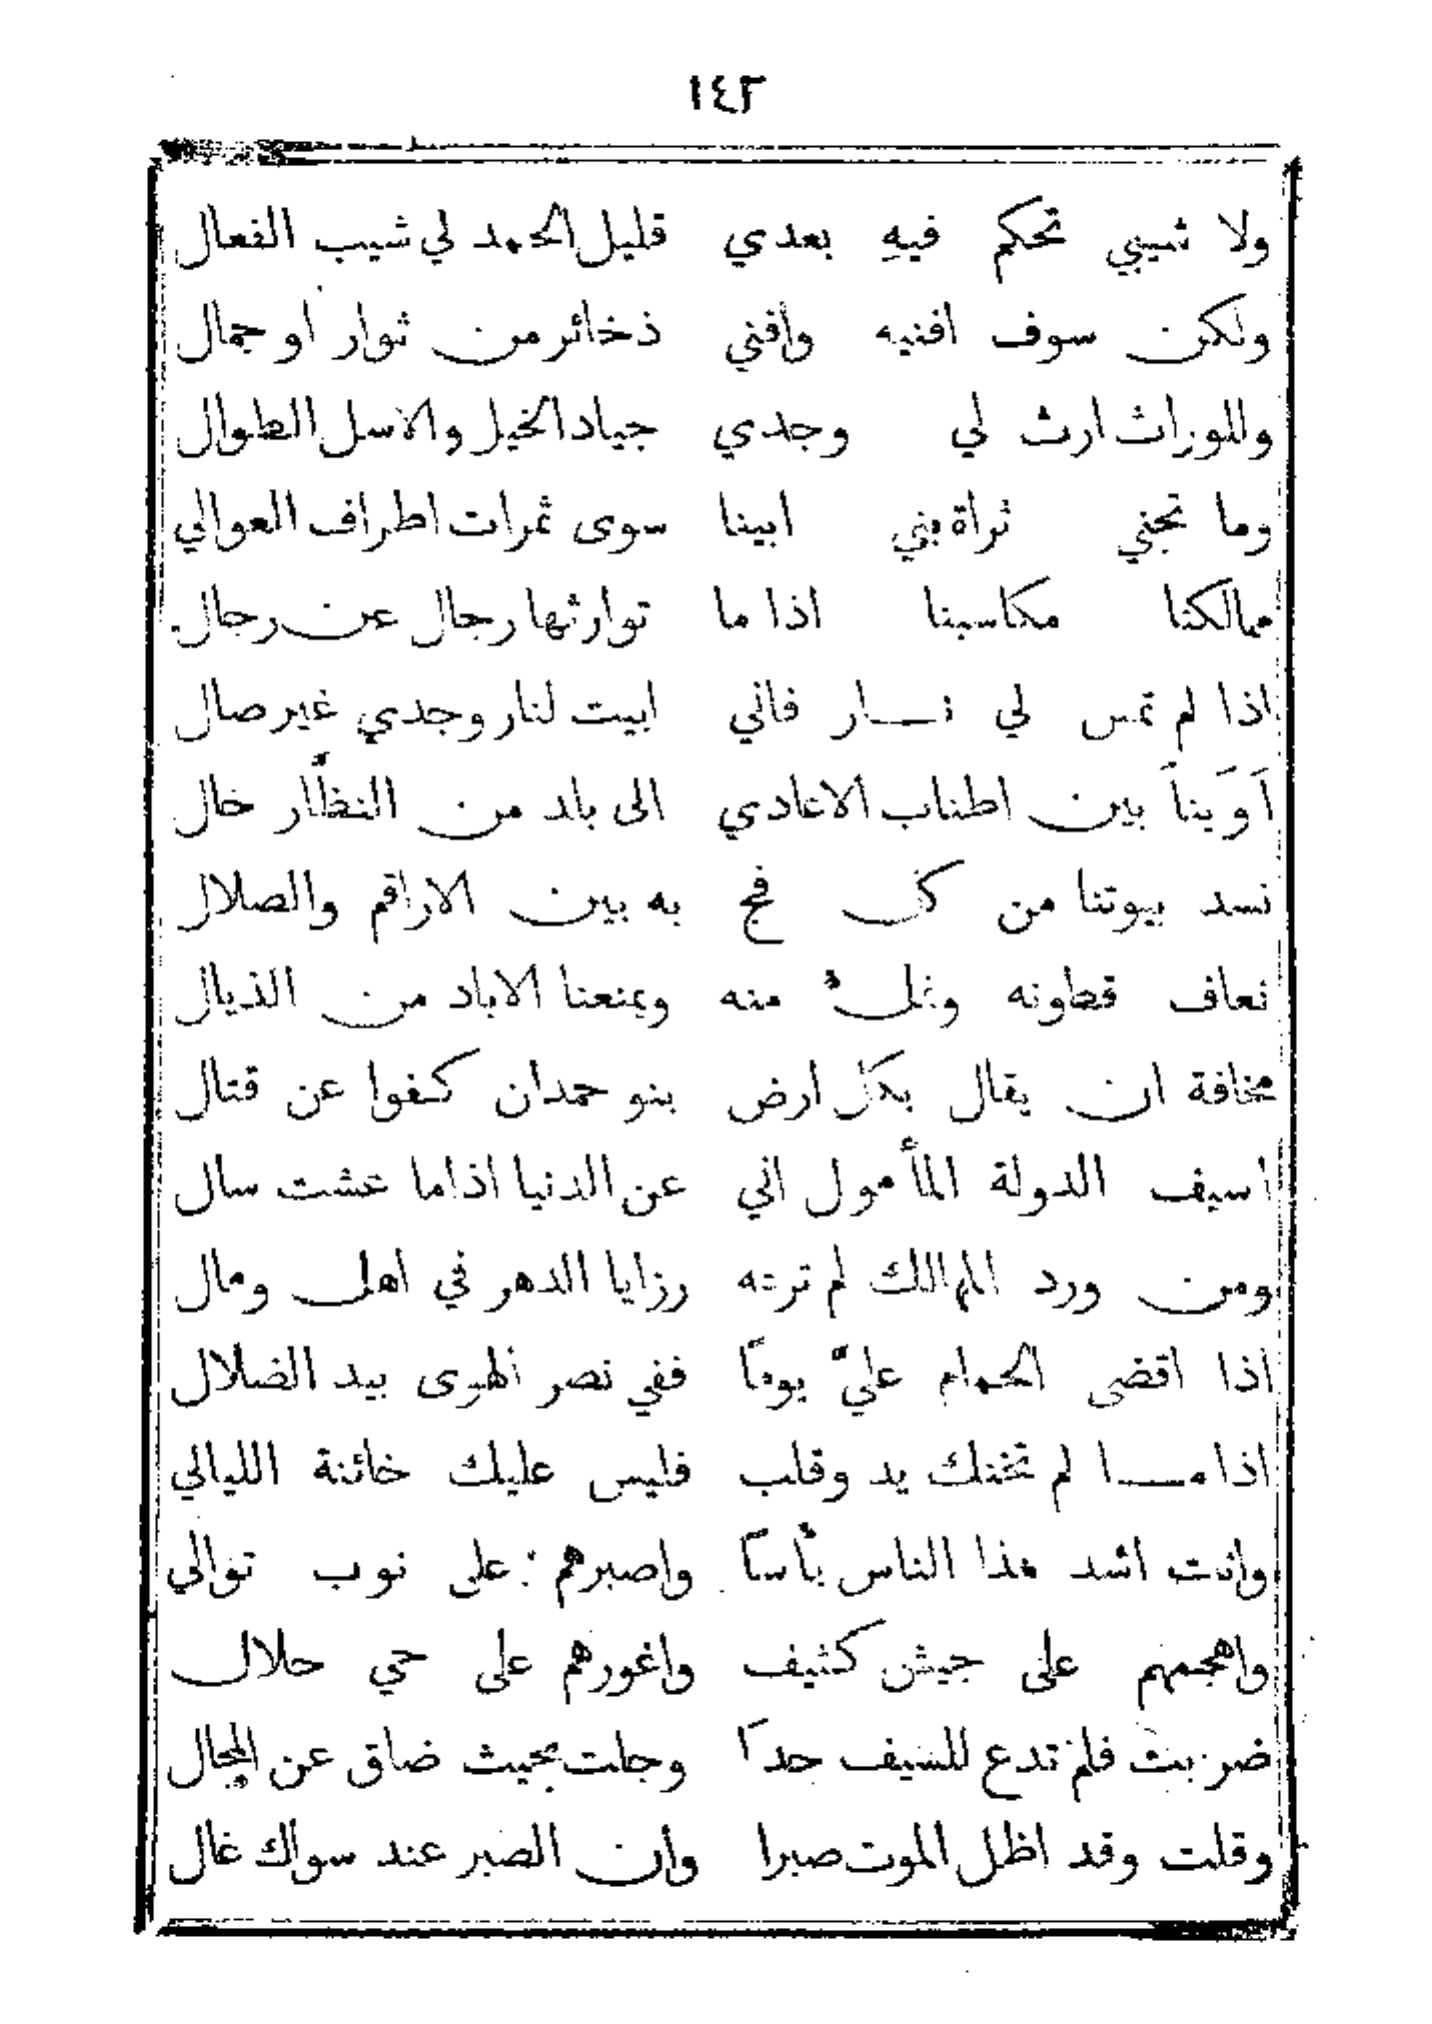 ١٤٢
ولا شيبي تحكم فيهِ بعدي قليل الحمد لي شيب الفعال
ولكن سوف افنيه وأفني ذخائر من ثوار او جمال
وللوراث ارث لي وجدي جياد الخيل والاسل الطوال
وما تجني ثراة بني ابينا سوى ثمرات اطراف العوالي
ممالكنا مكاسبنا اذا ما توارثها رجال عن رجال
اذا لم تمس لي نار فاني ابيت لنار وجدي غير صال
اَوَيناَ بين اطناب الاعادي الى بلد من النظَّار خال
نسد بيوتنا من كل فج به بين الاراقم والصلال
نعاف قطونه ونمل منه ويمنعنا الاباد من الذيال
مخافة ان يقال بكل ارض بنو حمدان كفوا عن قتال
اسيف الدولة المأمول اني عن الدنيا اذا ما عشت سال
ومن ورد المهالك لم ترعه رزايا الدهر في اهل ومال
اذا اقضى الحمام عليَّ يومًا ففي نصر الهوى بيد الضلال
اذا مـا لم تخنك يد وقلب فليس عليك خائنة الليالي
وانت اشد هذا الناس بأسًا واصبرهم على نوب توالي
واهجمهم على جيش كثيف واغورهم على حي حلال
ضربت فلم تدع للسيف حدًا وجلت بحيث ضاق عن المجال
وقلت وقد اظل الموت صبرا وان الصبر عند سواك غال